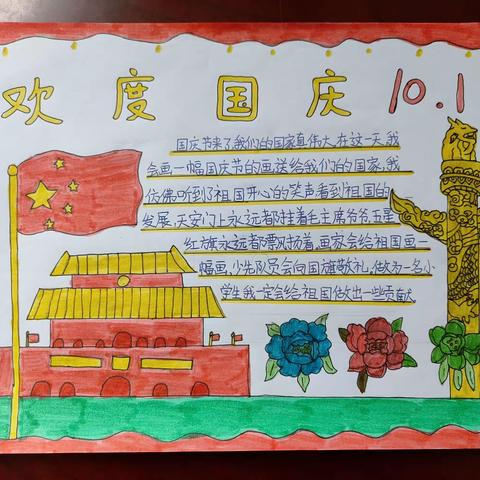 欢度国庆 10.1
国庆节来了我们的国家真伟大,在这一天,我
会画一幅国庆节的画送给我们的国家,我
仿佛听到了祖国开心的笑声看到祖国的
发展,天安门上永远都挂着毛主席爷爷,五星
红旗永远都飘扬着,画家会给祖国画一
幅画,少先队员会向国旗敬礼,做为一名小
学生我一定会给祖国做出一些贡献